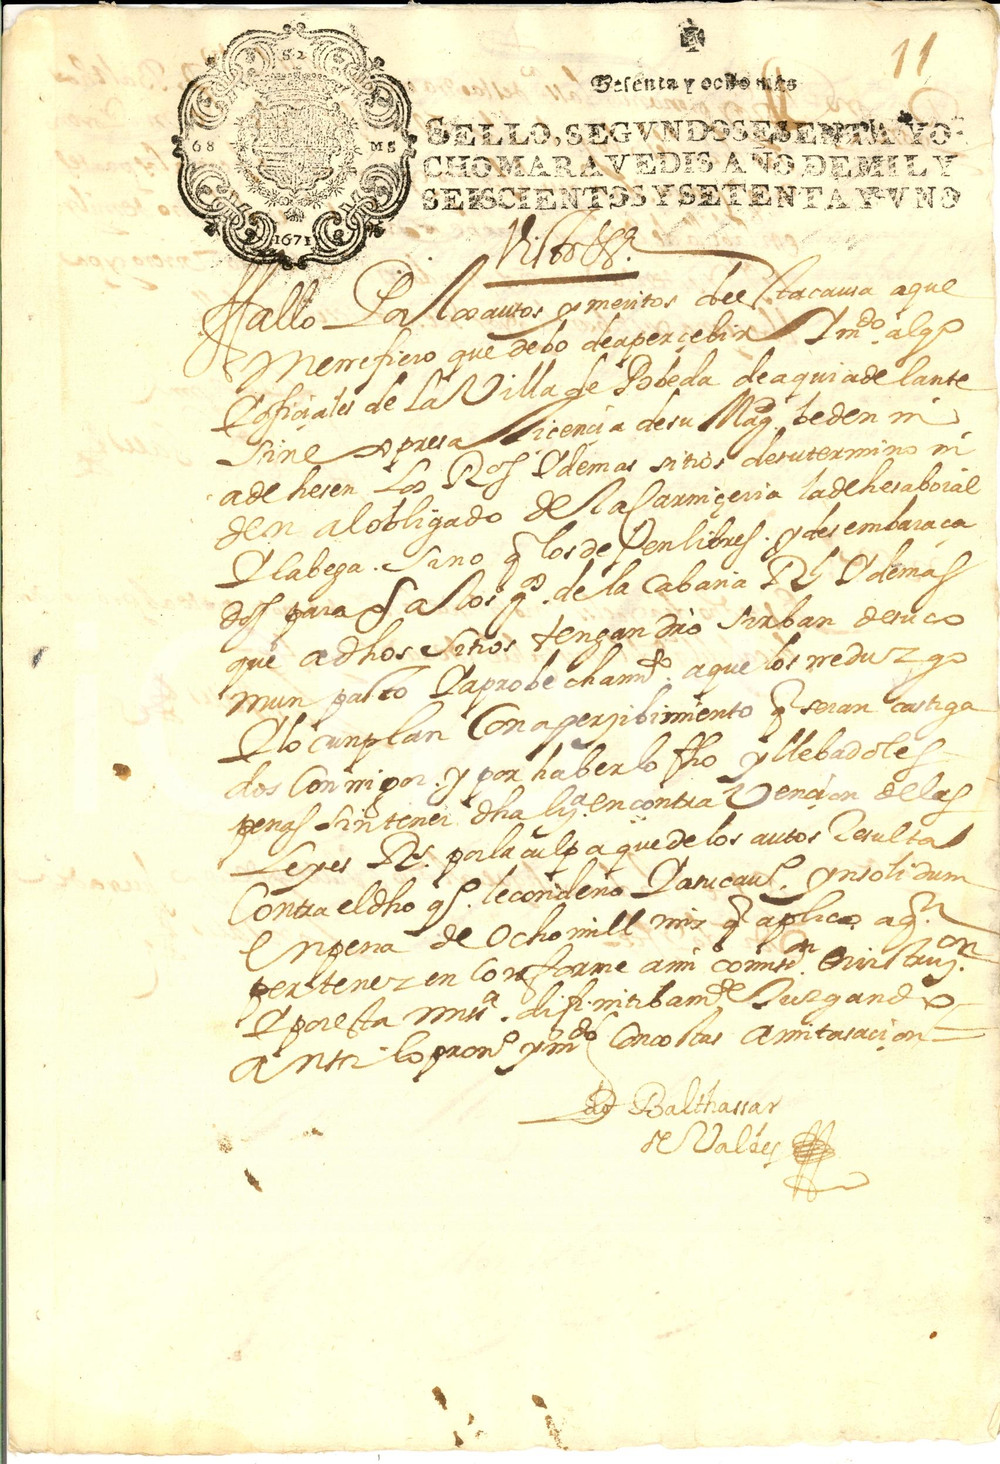 11
Sesenta y ocho mrs
SELLO, SEGVNDO SESENTA YO
CHO MARAVEDIS AÑO DE MIL Y
SEISCIENTOS Y SETENTA Y VNO
S2
68 MS
1671
Vistos
Fallo Por los autos y meritos de esta causa a que
me refiero que debo de apercebir Y mdo. al qo
Y oficiales de la Villa de Pobeda de aqui adelante
sin espresa licencia de su Magd. beden ni
adehesen los Ros Y demas sitios de su termino ni
den al obligado de la Carniceria la dehesa boial
Y la bega. sino q los desen libres. y desembaraça
dos para q a los gdos. de la cabaña Rl Y demas
que a dhos sitios tengan dro sirban de su co
mun pasto Y aprobechamto. a que los reduzgo
Y lo cunplan Con apersibimiento q seran castiga
dos Con mi por. y por haberlo fho y llebadoles
penas sin tener dha liza. en contra Vencion de las
Leyes Rs. por la culpa que de los autos Resulta
Contra el dho qo. le condeno Y a su caus. ynsolidum
En pena de ocho mill mrs q aplico a qn.
pertenezen Conforme a mi comisn. e ynstruzon.
Y por esta mi sa. difinitibamte Juzgando
ansi lo pronо y mdo Con costas a mi tasacion
Balthassar
de Valdes